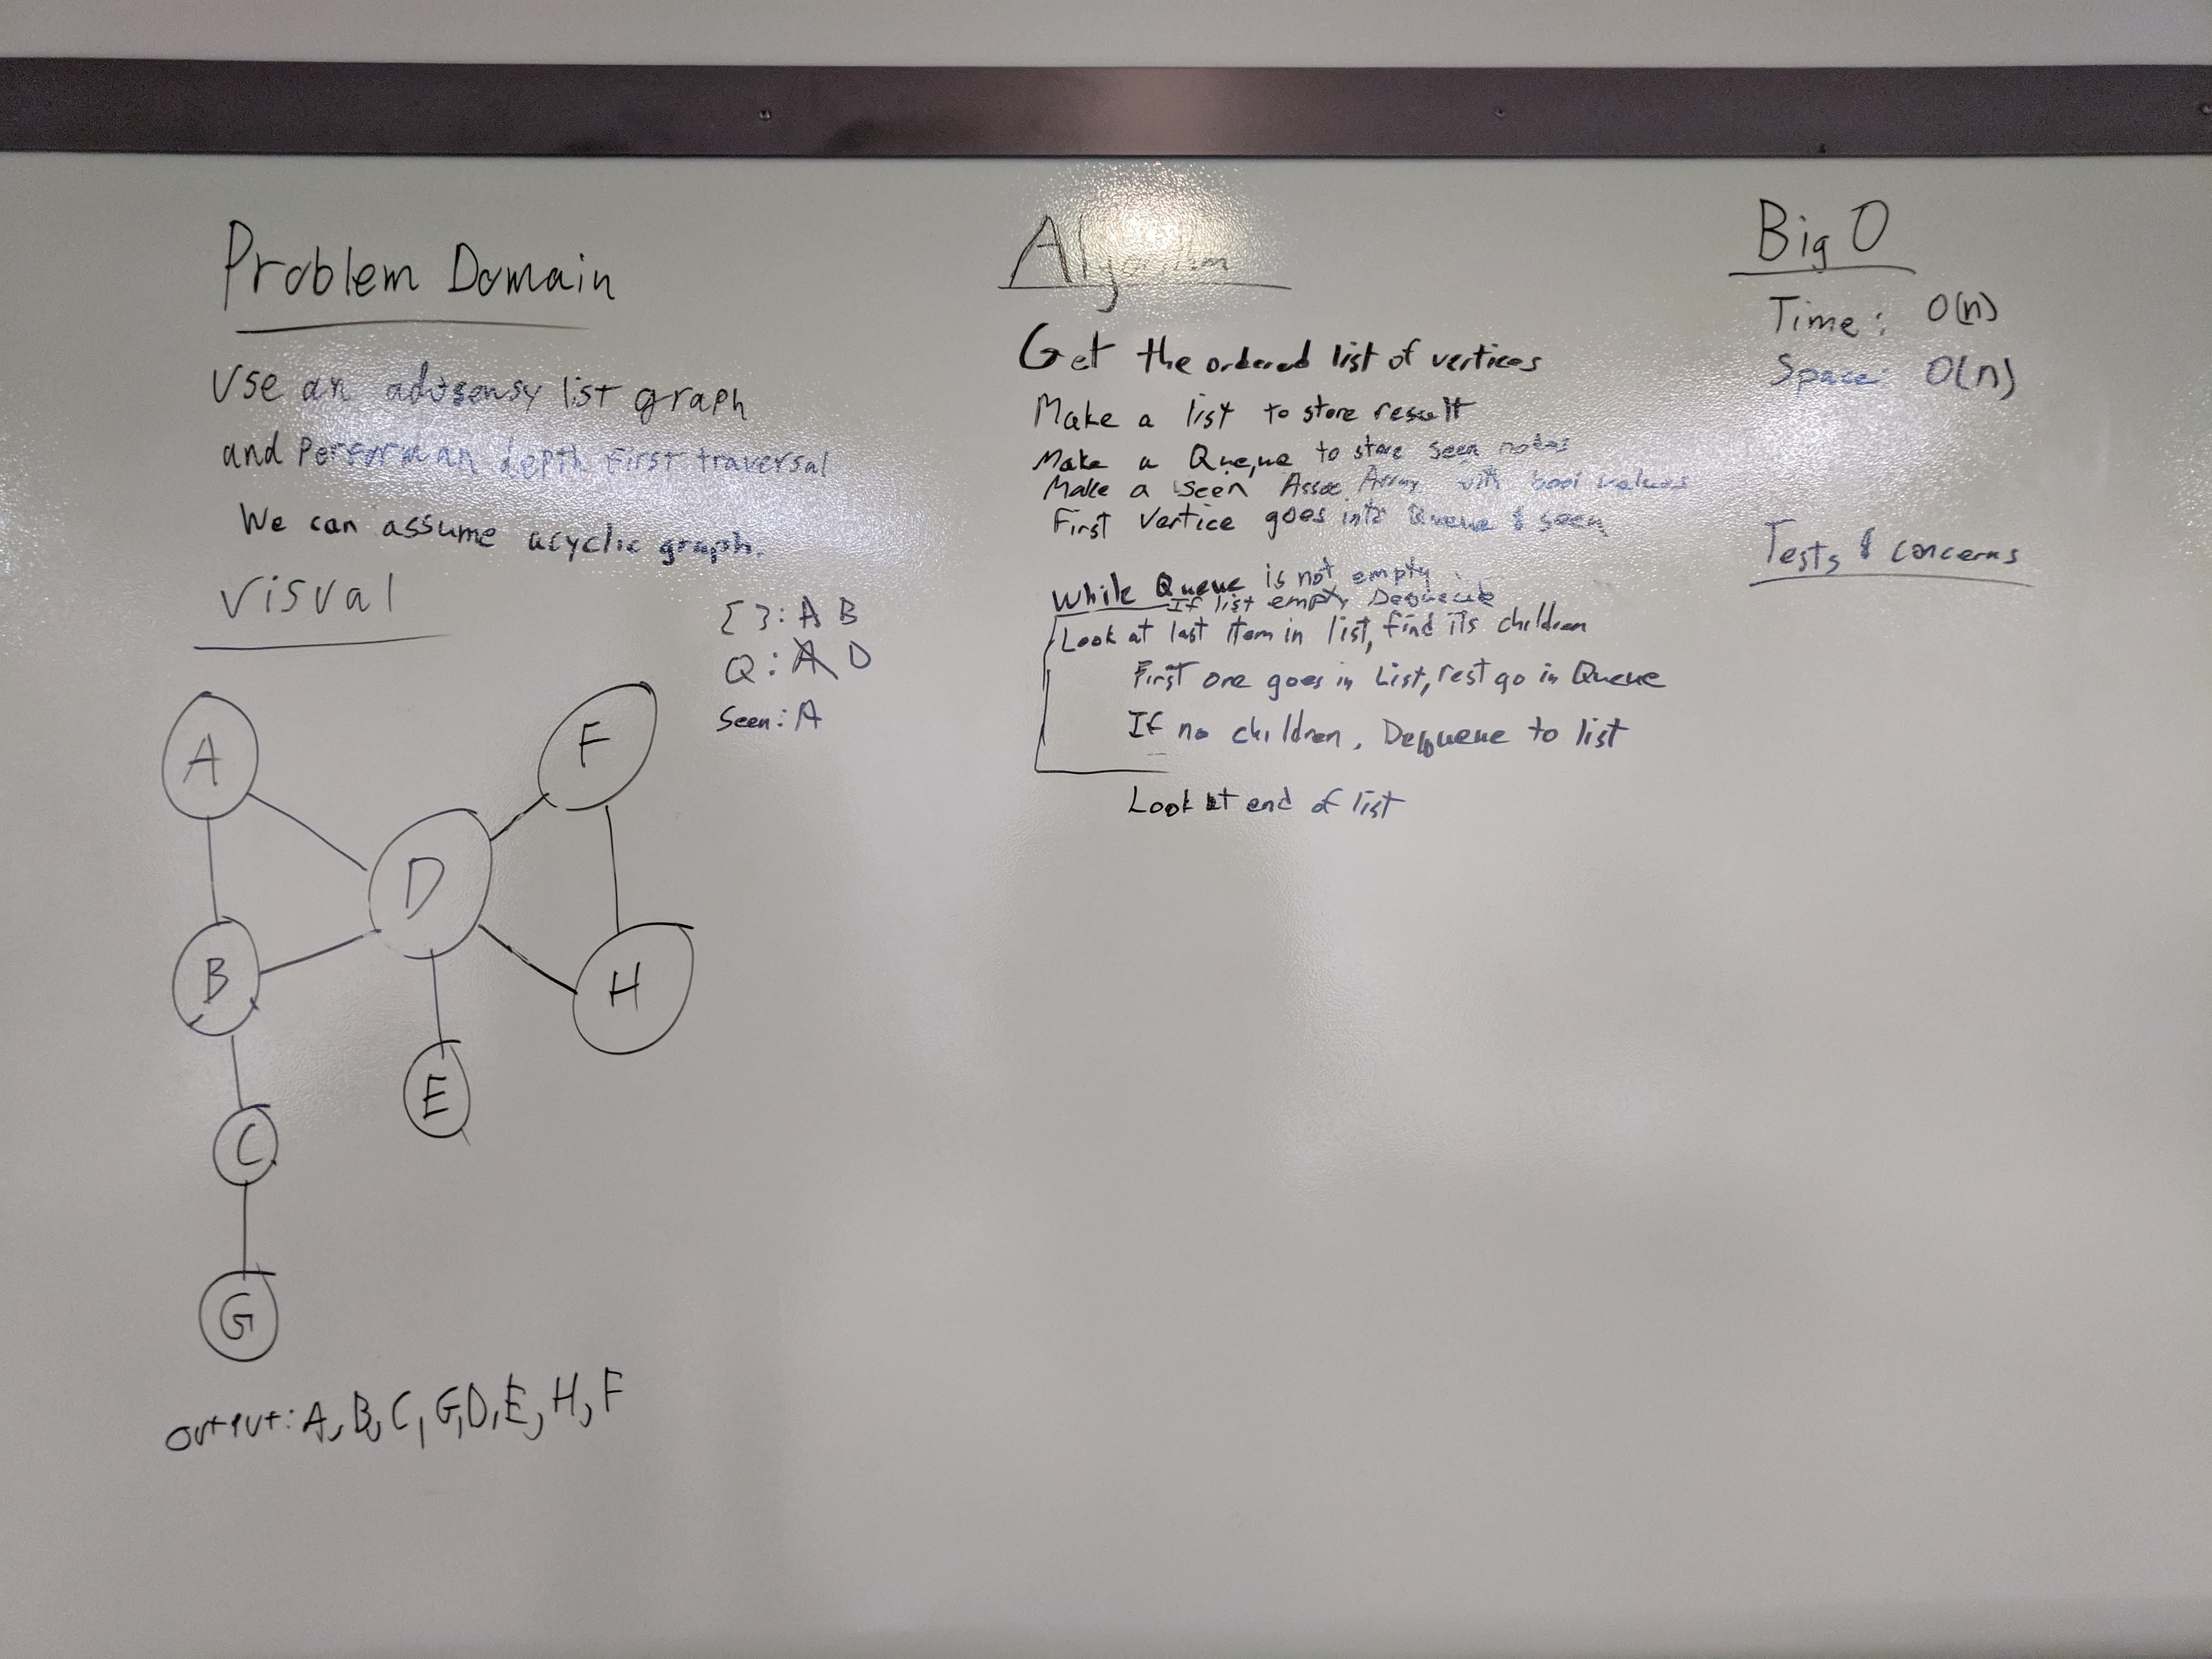 Problem Domain
Use an adjsensy list graph
and Perform an depth First traversal
We can assume acyclic graph.
Visual
[ ]: A B
Q: A D
Seen: A
A
F
D
B
H
E
C
G
output: A, B, C, G, D, E, H, F
Algorithm
Get the ordered list of vertices
Make a list to store result
Make a Queue to store seen notes
Make a seen Assoc. Array with bool values
First Vertice goes into Queue & seen
While Queue is not empty
If list empty Dequeue
Look at last item in list, find its children
First one goes in List, rest go in Queue
If no children, Dequeue to list
Look at end of list
Big O
Time: O(n)
Space: O(n)
Tests & concerns